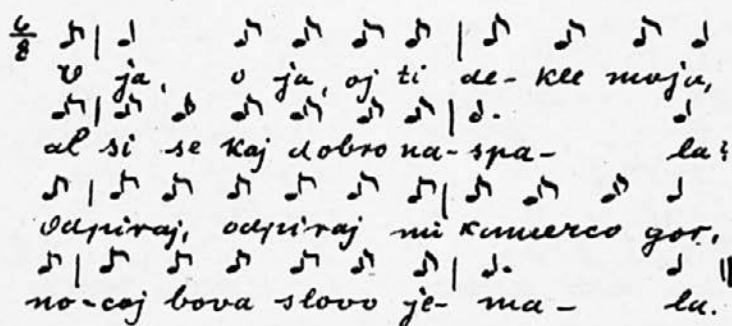 6/8
O ja, o ja, oj ti de-kle moja,
al si se kaj dobro na-spa- la?
Odpiraj, odpiraj mi kamerco gor,
no-coj bova slovo je-ma- la.